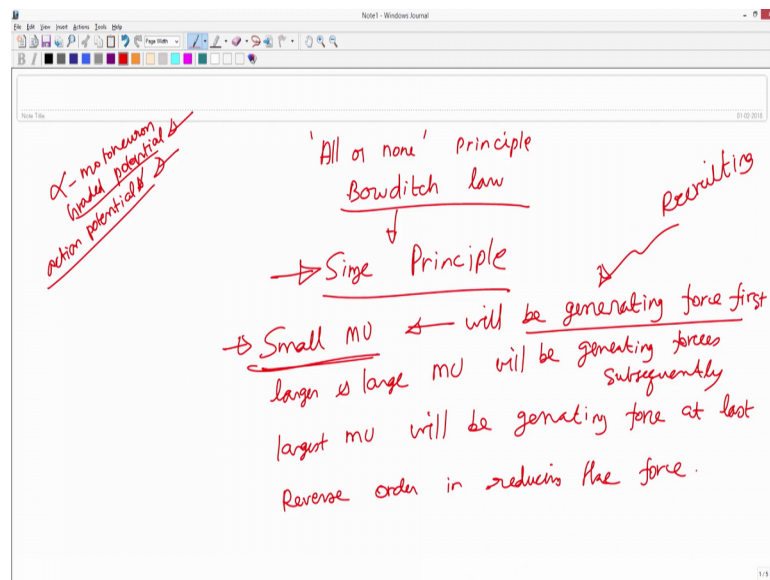 Note1 - Windows Journal
File Edit View Insert Actions Tools Help
Page Width
B I
Note Title
01-02-2018
α - motoneuron
Graded potential
action potential
'All or none' principle
Bowditch law
Size Principle
Recruiting
Small MU ← will be generating force first
larger & large MU will be geneating forces
subsequently
largest MU will be genating force at last
Reverse order in reducing the force.
1/5